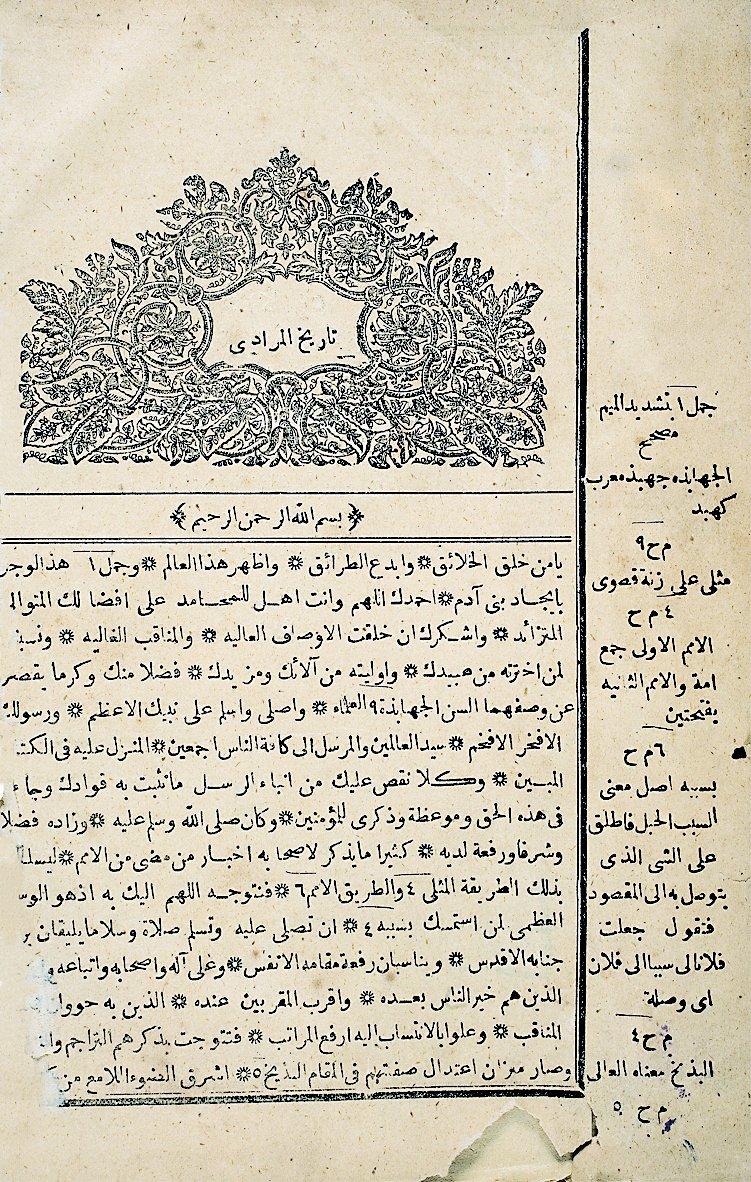 تاريخ المرادى
بسم الله الرحمن الرحيم
يامن خلق الخلائق ❊ وابدع الطرائق ❊ واظهر هذا العالم ❊ وجمل ١ هذا الوجو
بايجاد بنى آدم ❊ احمدك اللهم وانت اهل للمحامد على افضالك المتوالى
المتزائد ❊ واشكرك ان خلقت الاوصاف العاليه ❊ والمناقب الغاليه ❊ ونسبة
لمن اخترته من عبيدك ❊ واوليته من آلائك ومزيدك ❊ فضلا منك وكرما يقصر
عن وصفهما السن الجهابذة ٩ العلماء ❊ واصلى واسلم على نبيك الاعظم ❊ ورسولك
الافخر الافخم ❊ سيد العالمين والمرسل الى كافة الناس اجمعين ❊ المنزل عليه فى الكتا
المبين ❊ وكلا نقص عليك من انباء الرسل مانثبت به فوادك وجاءك
فى هذه الحق وموعظة وذكرى للمؤمنين ❊ وكان صلى الله وسلم عليه ❊ وزاده فضلا
وشرفا ورفعة لديه ❊ كثيرا مايذكر لاصحابه اخبار من مضى من الامم ❊ ليسلك
بذلك الطريقة المثلى ٤ والطريق الامم ٦ ❊ فنتوجه اللهم اليك به اذ هو الوس
العظمى لمن استمسك بسببه ٤ ❊ ان تصلى عليه وتسلم صلاة وسلاما يليقان بر
جنابه الاقدس ❊ ويناسبان رفعة مقامه الانفس ❊ وعلى آله واصحابه واتباعه و
الذين هم خير الناس بعده ❊ واقرب المقربين عنده ❊ الذين به حووا
المناقب ❊ وعلوا بالانتساب اليه ارفع المراتب ❊ فتتوجت بذكرهم التراجم وا
وصار ميزان اعتدال صفتهم فى المقام البذيخ ٥ ❊ اشرق الضوء اللامع من
جمل ١ بتشديد الميم
مصحح
الجهابذه جهبذ معرب
كهبد
م ح ٩
مثلى على زنة قصوى
٤ م ح
الامم الاولى جمع
امة والامم الثانيه
بفتحتين
٦ م ح
بسببه اصل معنى
السبب الحبل فاطلق
على الشى الذى
يتوصل به الى المقصود
فتقول جعلت
فلانا لى سببا الى فلان
اى وصلة
م ح ٤
البذيخ معناه العالى
م ح ٥